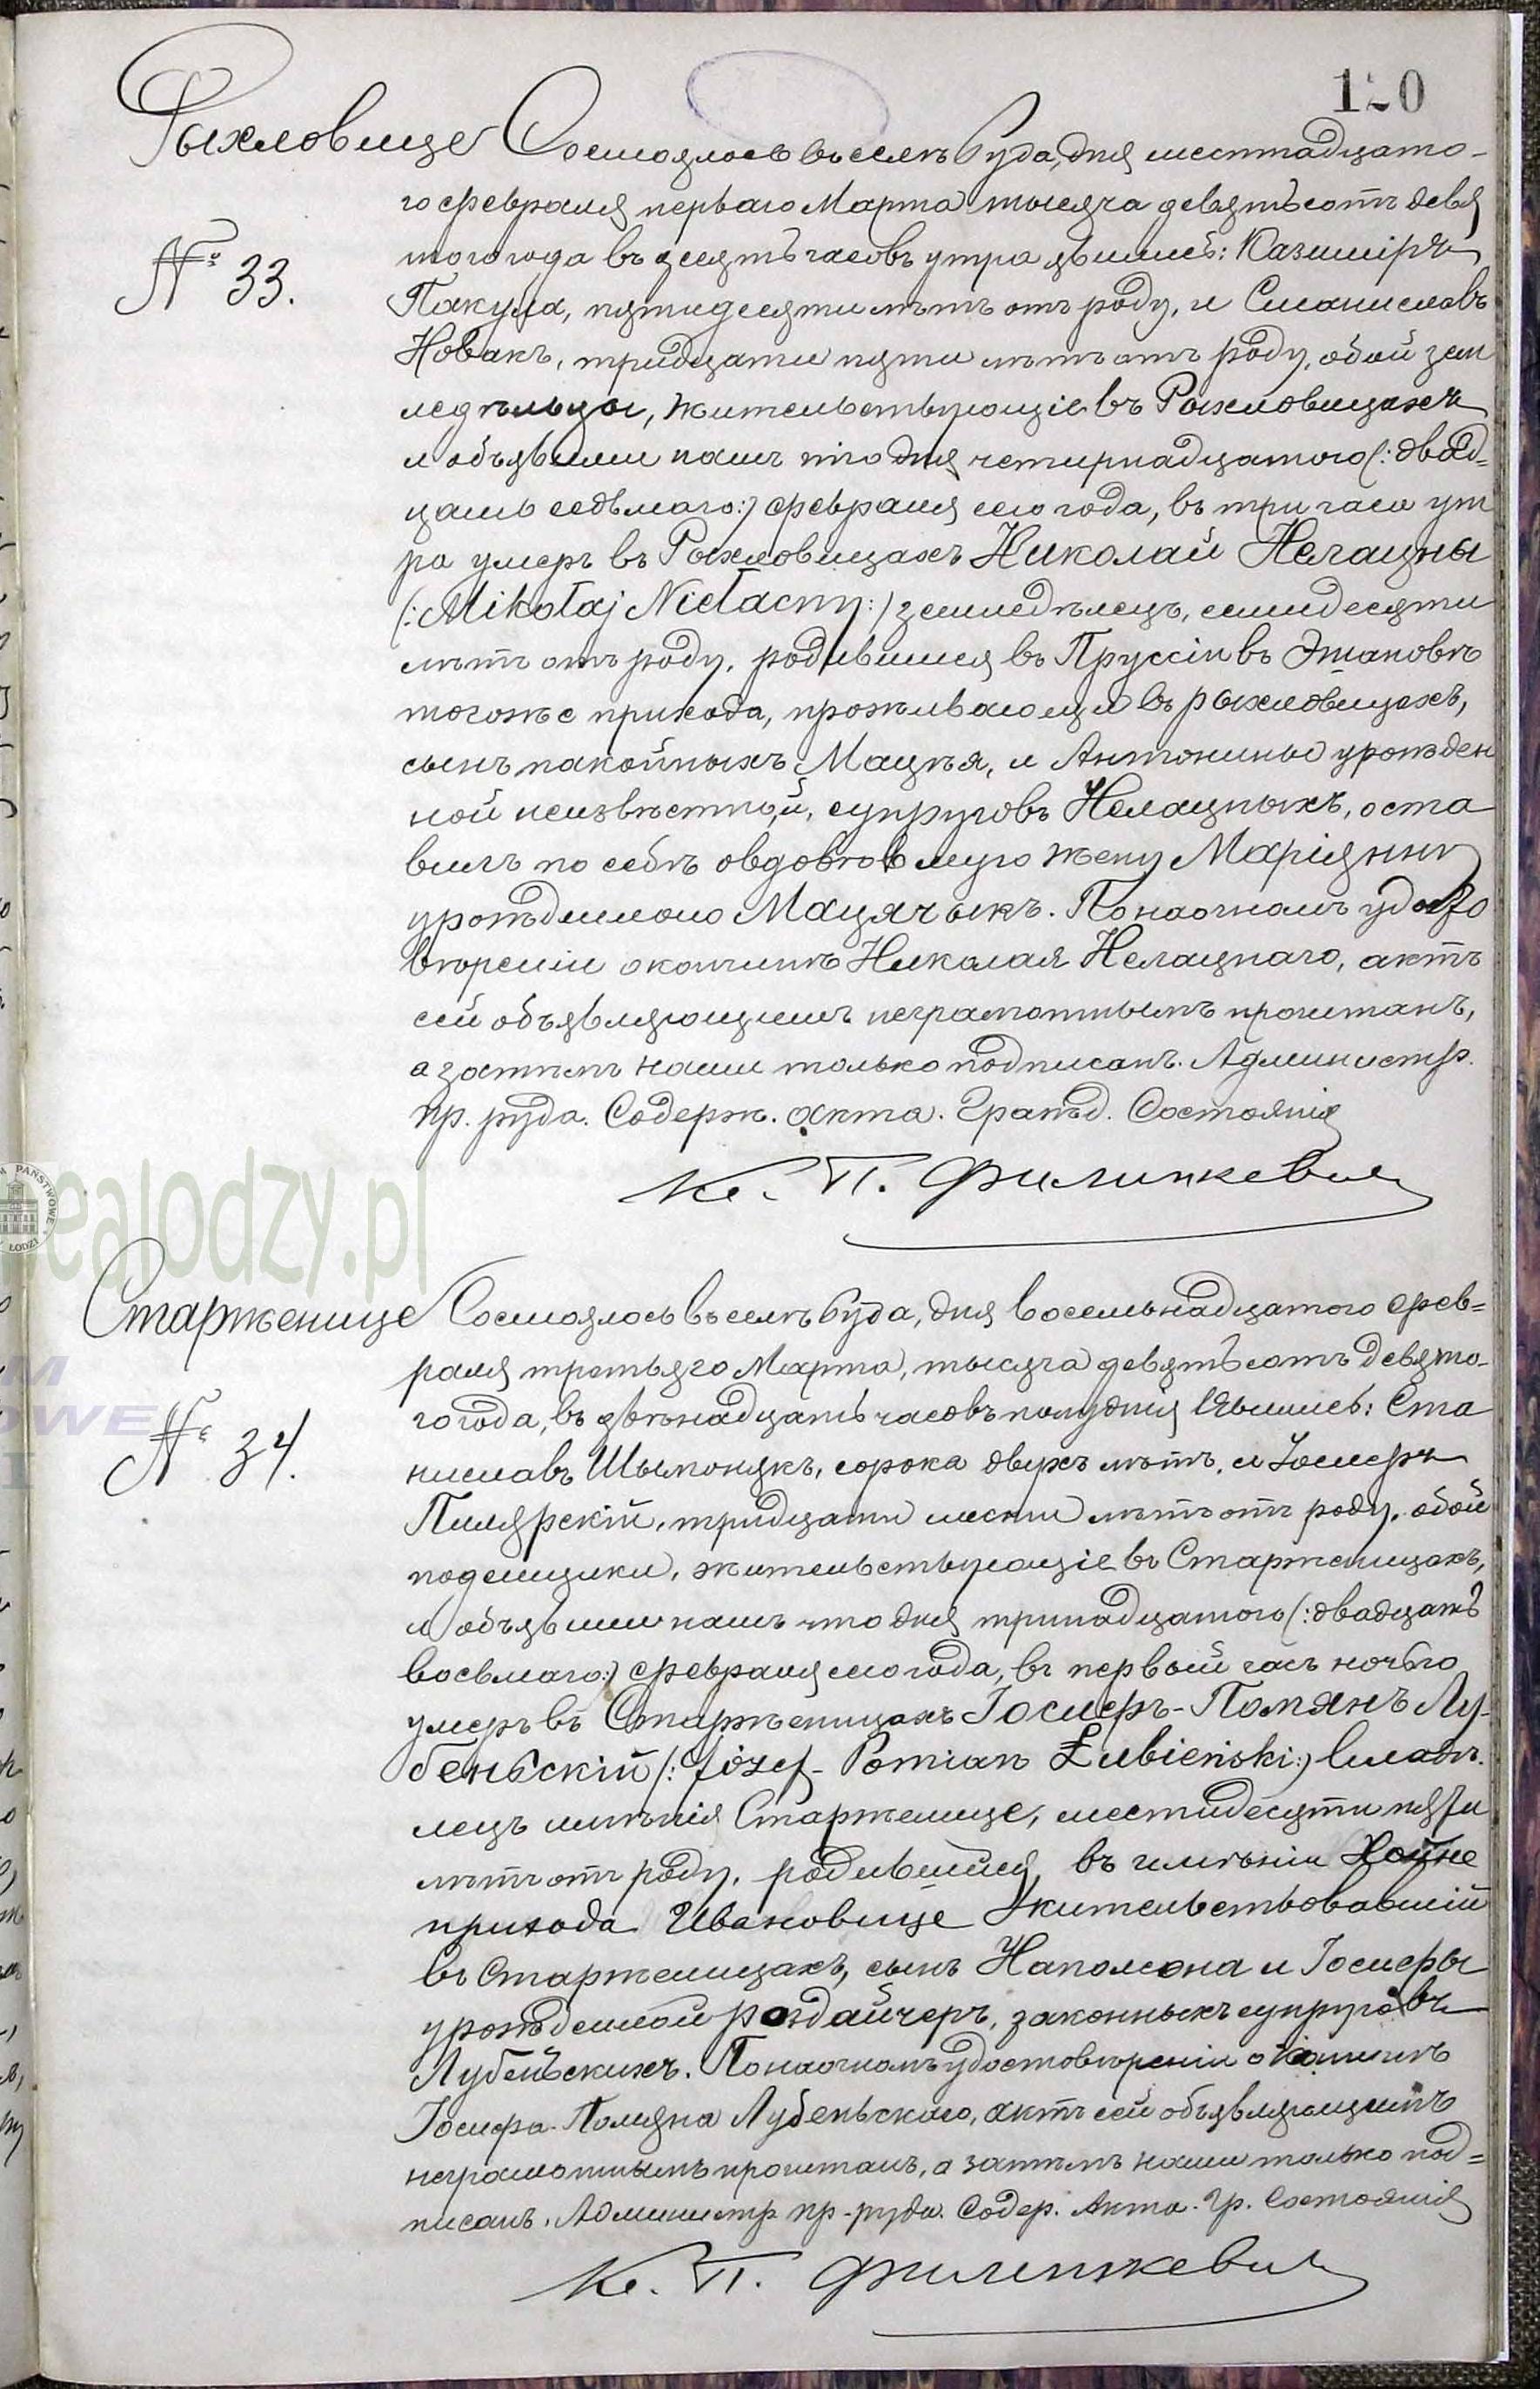 120
Рыхловице Состоялось въ селѣ Руда, дня шестнадцата-
го февраля перваго Марта тысяча девятьсотъ девя
того года въ десять часовъ утра явились: Казиміръ
№ 33.
Пакула, пятидесяти лѣтъ отъ роду, и Станиславъ
Новакъ, тридцати пяти лѣтъ отъ роду, обои зем
ледѣльцы, жительствующіе въ Рыхловицахъ
и объявили намъ что дня четырнадцатого (: двад=
цать седьмаго:) февраля сего года, въ три часа ут
ра умеръ въ Рыхловицахъ Николай Нелацны
(: Mikołaj Niełacny:) земледѣлецъ, семидесяти
лѣтъ отъ роду, родившися въ Пруссіи въ
тогожъе прихода, проживающи въ рыхловицахъ,
сынъ покойныхъ Мацѣя, и Антонины урожден
ной неизвѣстной, супруговъ Нелацныхъ, оста
вилъ по себѣ овдовѣвшую жену Маріянну
урожденною Мацячыкъ. По наочномъ удосто
вѣреніи о кончинѣ Николая Нелацнаго, актъ
сей объявляющимъ неграмотнымъ прочитанъ,
а затѣмъ нами только подписанъ. Администр.
пр. руда. Содерж. акта. Гражд. Состоянія
Кс. П. Филипкевич
Старженице Состоялось въ селѣ Руда, дня восемьнадцатого фев=
раля третьяго Марта, тысяча девятьсотъ девято-
го года, въ двѣнадцать часовъ полудня явились: Ста
№ 34.
ниславъ Шымонякъ, сорока двухъ лѣтъ, и Іосифъ
Пилярскій, тридцати шести лѣтъ отъ роду, обои
поденщики, жительствующіе въ Старженицахъ,
и объявили намъ что дня тринадцатого (: двадцать
восьмаго:) февраля сего года, въ первый часъ ночью
умеръ въ Старженицахъ Іосифъ-Помянъ Лу-
беньскій (: Józef-Pomian Łubieński:) владѣ
лецъ имѣнія Старженице, шестидесяти пяти
лѣтъ отъ роду, родившійся, въ имѣніи
прихода Ивановице жительствовавшій
въ Старженицахъ, сынъ Наполеона и Іосифы
урожденной, законныхъ супруговъ
Лубеньскихъ. По наочномъ удостовѣреніи о кончинѣ
Іосифа-Помяна Лубеньскаго, актъ сей объявляющимъ
неграмотнымъ прочитанъ, а затѣмъ нами только под=
писанъ. Администр. пр. руда. Содер. Акта. Гр. Состоянія
Кс. П. Филипкевич